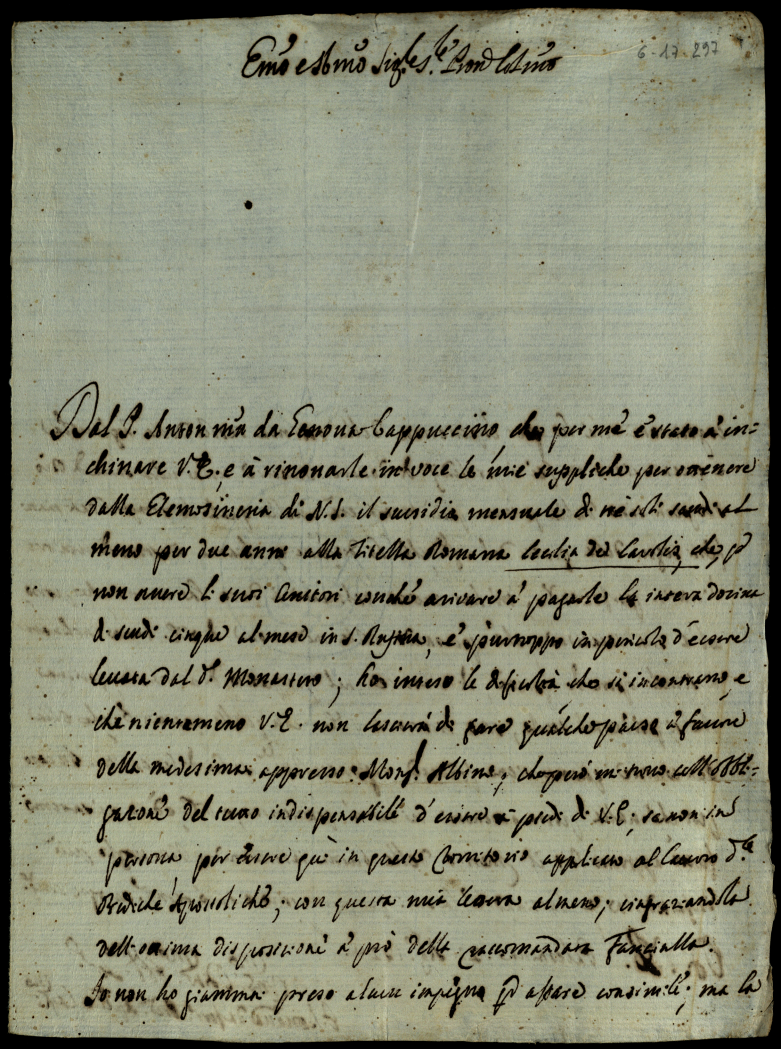 6-17-297
Emo e Rmo Sig.re Pron Colmo
Dal P. Anton Ma da Genova Cappuccino che per me è stato à in=
chinare V.E., e à rinovarle in voce le mie suppliche per ottenere
dalla Elemosineria di N.S. il sussidio mensuale di trè soli scudi al
meno per due anni alla Zitella Romana Cecilia de Carolis, che, p
non avere li suoi Genitori con che arivare à pagarle la intera dozina
di scudi cinque al mese in S. Rufina, è purtroppo in pericolo d'essere
levata dal do Monastero; ho inteso le dificoltà che si incontrano, e
che nientemeno V.E. non lascierà di fare qualche passo à favore
della medesima appresso Monsr Albini; che però mi trovo coll'obbli=
gazione del tutto indispensabile d'essere à piedi di V.E., se non in
persona, per essere quì in questo Territorio applicato al lavoro d.le
Prediche Apostoliche; con questa mia lettera almeno, ringraziandola
dell'ottima disposizione à prò della raccomandata Fanciulla.
Io non ho giammai preso alcun impegno p affare consimile; ma la